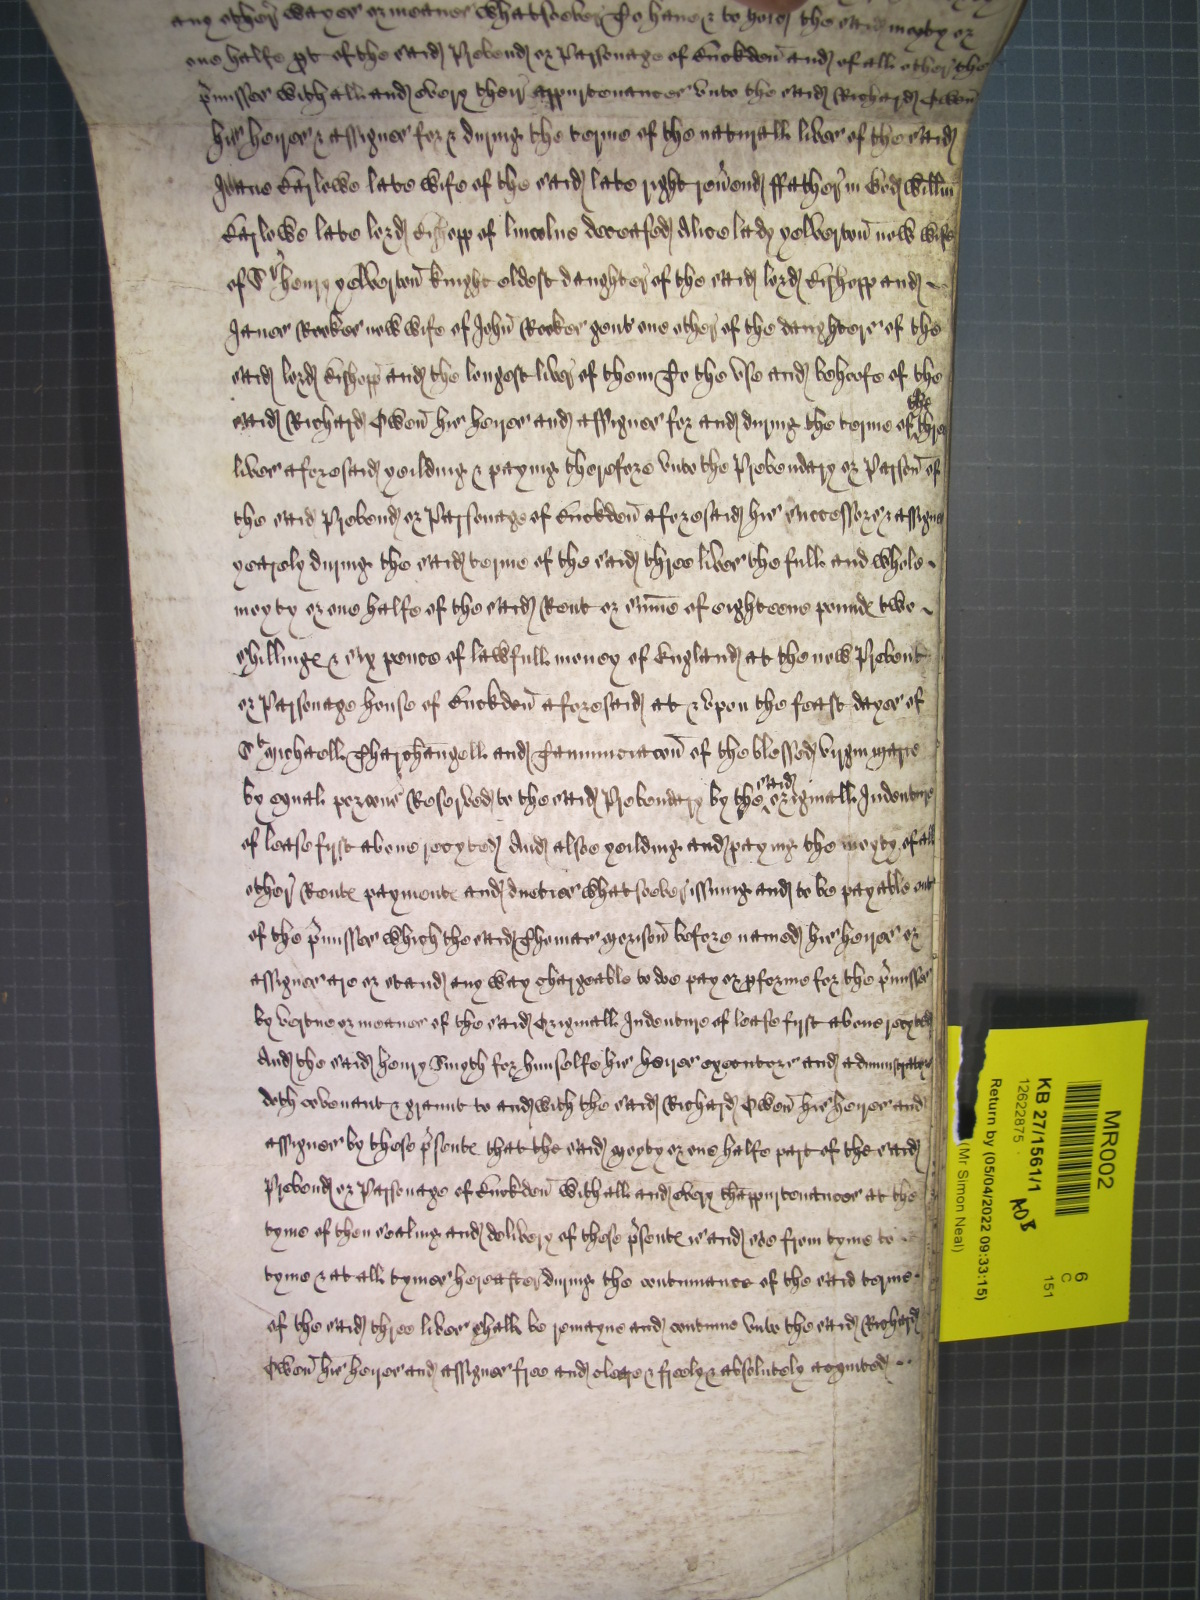 any other wayes or meanes whatsoever To have & to hold the said moyty or
one halfe pt of the said Prebend or Parsonage of Buckden and of all other the
pmisses with all and every their appurtenances unto the said Richard Owen
his heires & assignes for & during the terme of the naturall lives of the said
Joane Barlowe late wife of the said late right reverend ffather in God Willm
Barlowe late lord Bishopp of Lincolne deceased Alice lady yelverton now wife
of Sr henry yelverton knight eldest daughter of the said lord Bishopp and
Janes Rooker now wife of John Rooker gent one other of the daughters of the
said lord Bishopp and the longest liver of them To the use and behoofe of the
said Richard Owen his heires and assignes for and during the terme of the three
lives aforesaid yeilding & paying therefore unto the Prebendary or Parson of
the said Prebend or Parsonage of Buckden aforesaid his successors & assignes
yearely during the said terme of the said three lives the full and whole
moyty or one halfe of the said Rent or sume of eighteene pounds two
shillings & six pence of lawfull money of England at the now Prebent
or Parsonage house of Buckden aforesaid at & upon the feast dayes of
St Michaell Tharchangell and Tannunciacon of the blessed virgin marie
by equall porcons Reserved to the said Prebendary by the said originall Indenture
of lease first above recyted And alsoe yeilding and paying the moyty of all
other Rents payments and dueties whatsoever issuing and to be payable out
of the pmisses which the said Thomas Morison before named his heires or
assignes are or stand any way chargeable to doe pay or pforme for the pmisses
by vertue or meanes of the said Originall Indenture of lease first above recyted
And the said henry Smyth for himselfe his heires executors and administrators
doth covenant & graunt to and with the said Richard Owen his heires and
assignes by these psents that the said moyty or one halfe part of the said
Prebend or Parsonage of Buckden with all and every thappurtenances at the
tyme of then sealing and delivery of these psents is and soe from tyme to
tyme & at all tymes hereafter during the contynuance of the said terme
of the said three lives shall be remayne and contynue unto the said Richard
Owen his heires and assignes free and cleare & freely & absolutely acquited
MR002
6
C
151
KB 27/1561/1
AOB
12622875
Return by (05/04/2022 09:33:15)
(Mr Simon Neal)